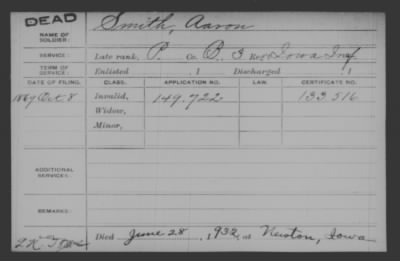 DEAD
NAME OF SOLDIER: Smith, Aaron
SERVICE: Late rank, P. Co. B, 3 Reg't Iowa Inf.
TERM OF SERVICE: Enlisted 1 Discharged 1
DATE OF FILING. CLASS. APPLICATION NO. LAW. CERTIFICATE NO.
1869 Oct. 8 Invalid, 149.722 133.516
Widow,
Minor,
ADDITIONAL SERVICES:
REMARKS:
Died June 28, 1932, at Iowa